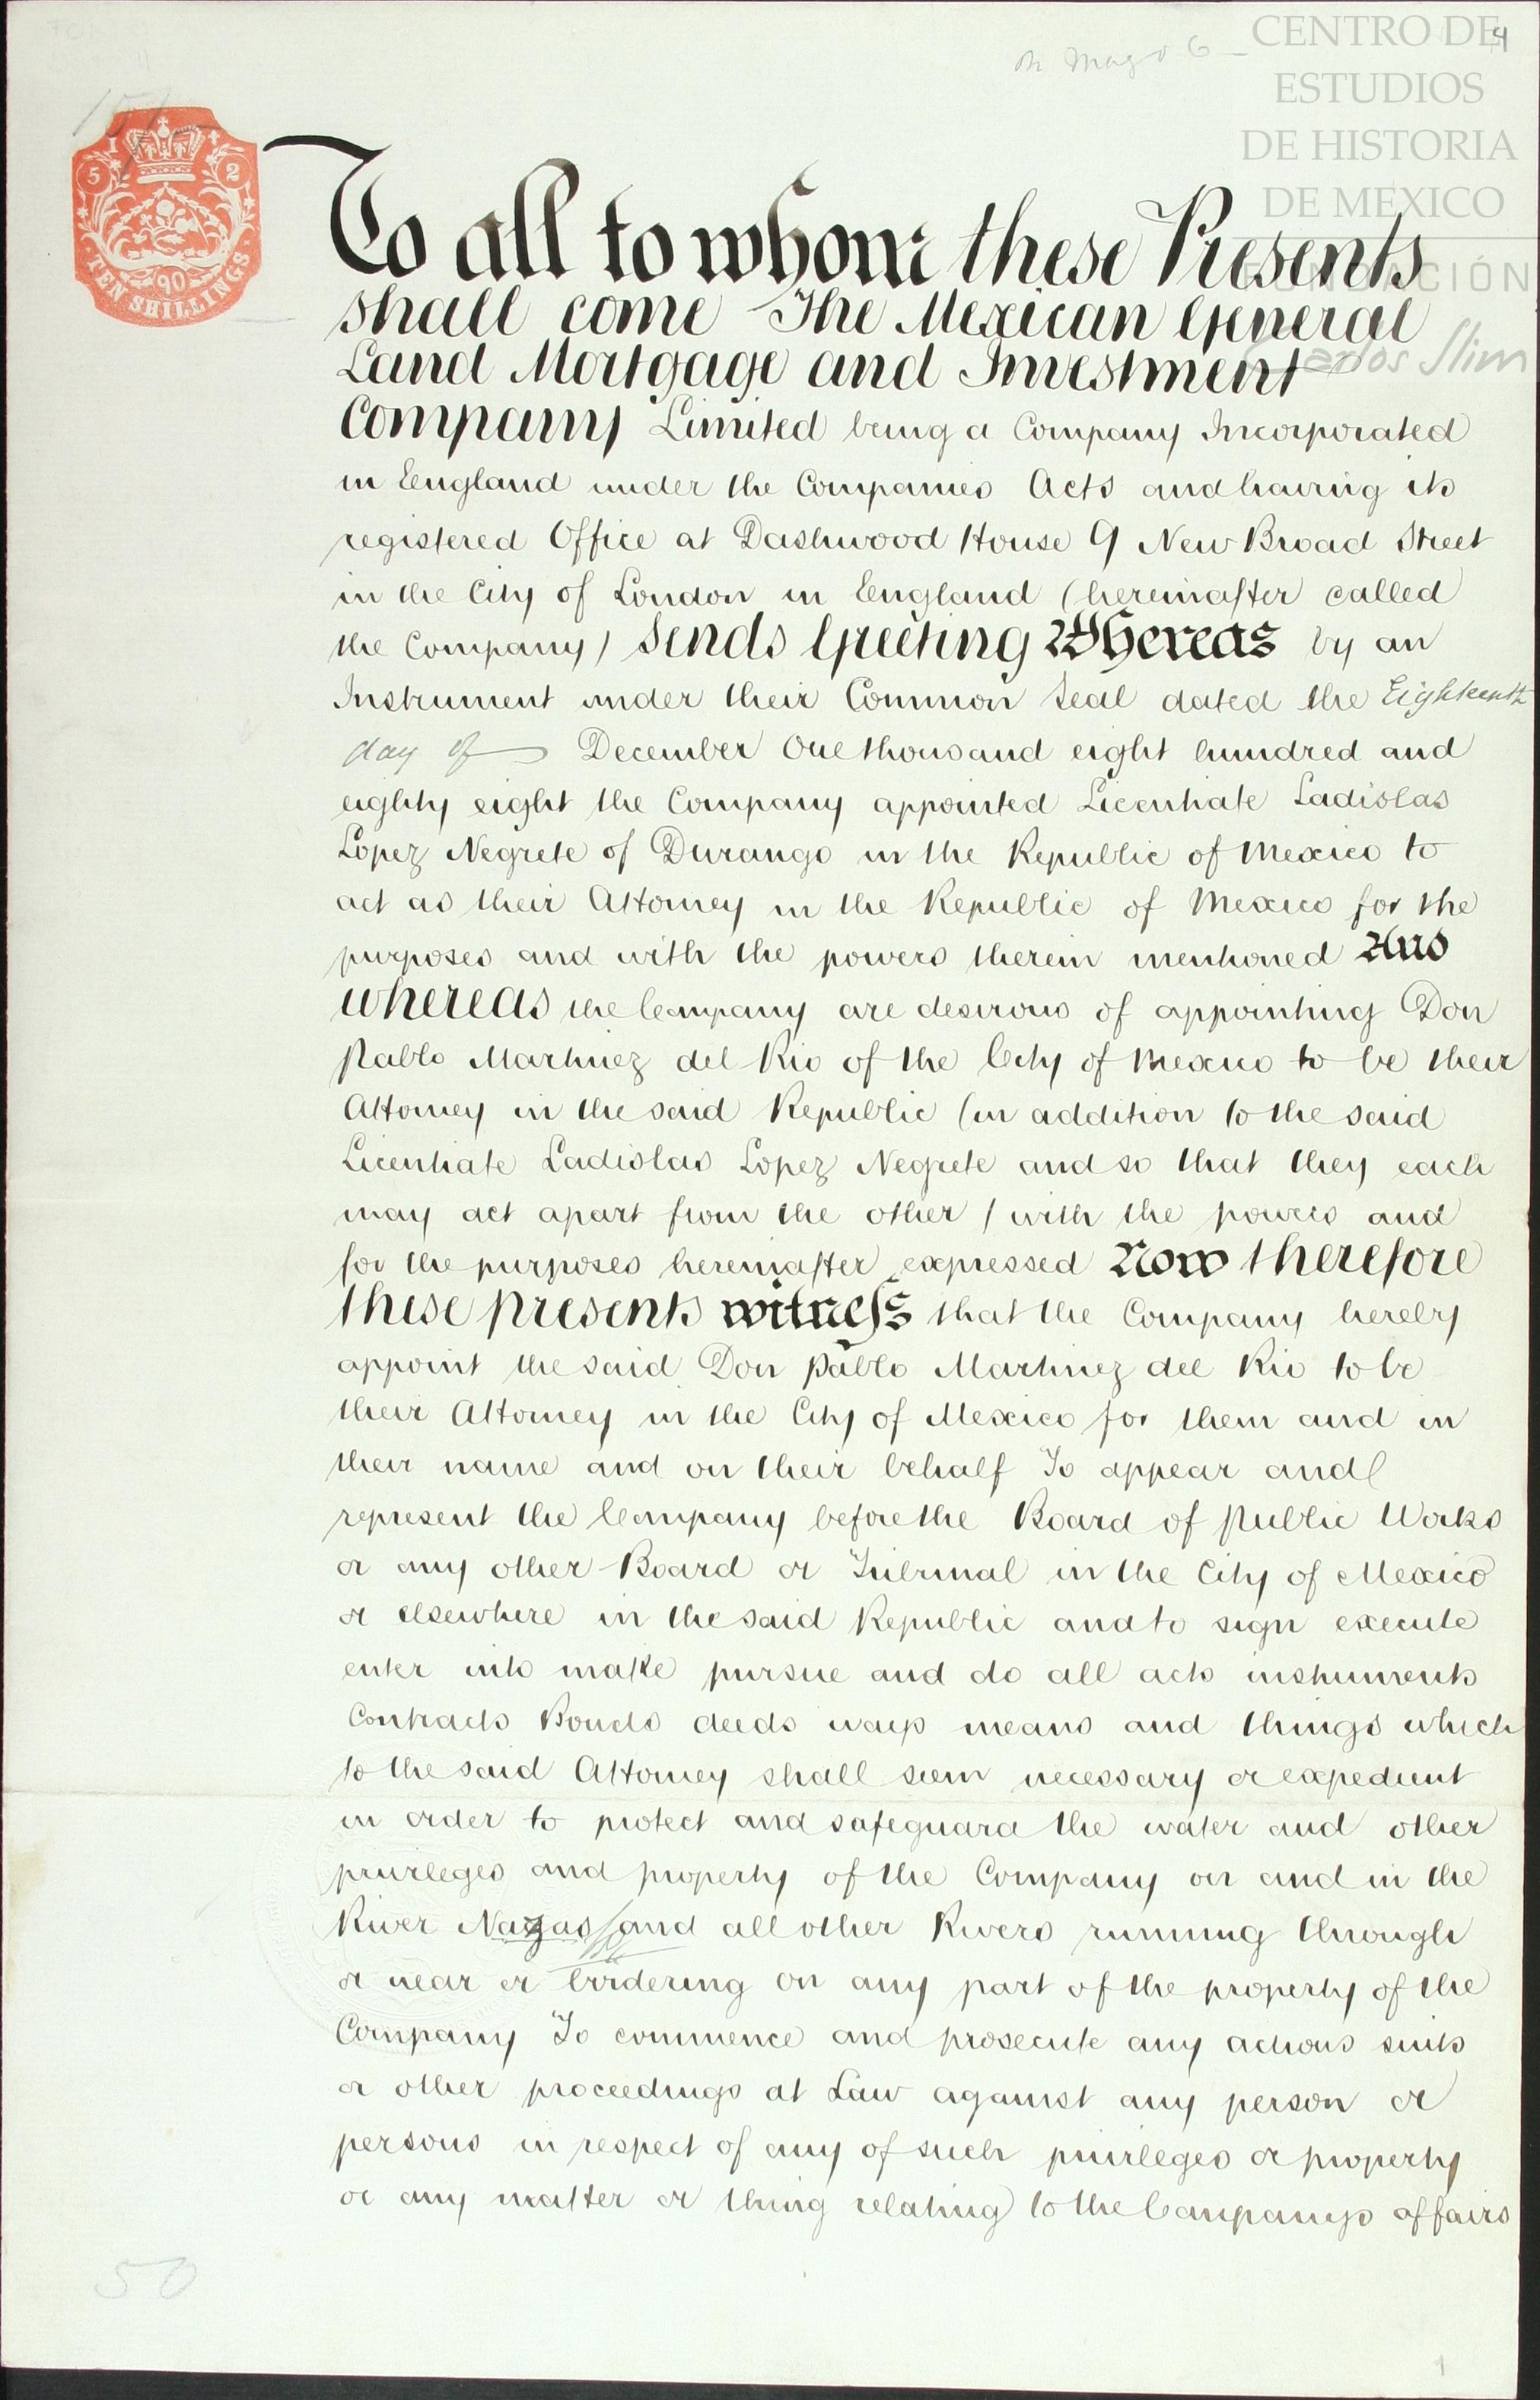 CENTRO DE
ESTUDIOS
DE HISTORIA
DE MEXICO
FUNDACIÓN
Carlos Slim
4
5 1 2
90
TEN SHILLINGS
To all to whom these Presents
shall come The Mexican General
Land Mortgage and Investment
Company Limited being a Company Incorporated
in England under the Companies Acts and having its
registered Office at Dashwood House 9 New Broad Street
in the City of London in England (hereinafter called
the Company) Sends Greeting Whereas by an
Instrument under their Common Seal dated the Eighteenth
day of December One thousand eight hundred and
eighty eight the Company appointed Licentiate Ladislas
Lopez Negrete of Durango in the Republic of Mexico to
act as their Attorney in the Republic of Mexico for the
purposes and with the powers therein mentioned And
whereas the Company are desirous of appointing Don
Pablo Martinez del Rio of the City of Mexico to be their
Attorney in the said Republic (in addition to the said
Licentiate Ladislas Lopez Negrete and so that they each
may act apart from the other) with the powers and
for the purposes hereinafter expressed Now therefore
these presents witness that the Company hereby
appoint the said Don Pablo Martinez del Rio to be
their Attorney in the City of Mexico for them and in
their name and on their behalf To appear and
represent the Company before the Board of Public Works
or any other Board or Tribunal in the City of Mexico
or elsewhere in the said Republic and to sign execute
enter into make pursue and do all acts instruments
Contracts Bonds deeds ways means and things which
to the said Attorney shall seem necessary or expedient
in order to protect and safeguard the water and other
privileges and property of the Company on and in the
River Nazas and all other Rivers running through
or near or bordering on any part of the property of the
Company To commence and prosecute any actions suits
or other proceedings at Law against any person or
persons in respect of any of such privileges or property
or any matter or thing relating to the Companys affairs
50
1